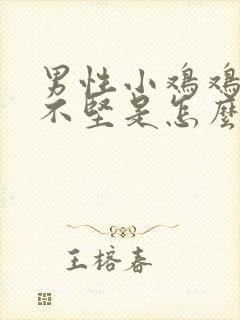 男性小鸡鸡
不坚是怎么
王榕春